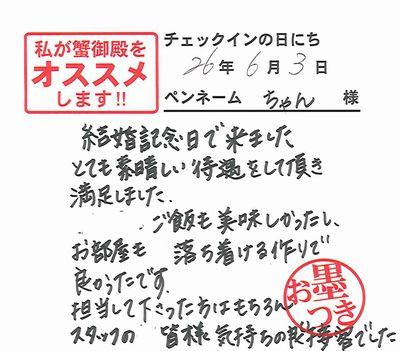 私が蟹御殿を
オススメ
します!!
チェックインの日にち
26年 6月 3日
ペンネーム ちゃん 様
結婚記念日で来ました
とても素晴しい待遇をして頂き
満足しました。
ご飯も美味しかったし、
お部屋も 落ち着ける作りで
良かったです。
担当して下さった方はもちろん
スタッフの 皆様気持ちの良い接客でした
お墨つき